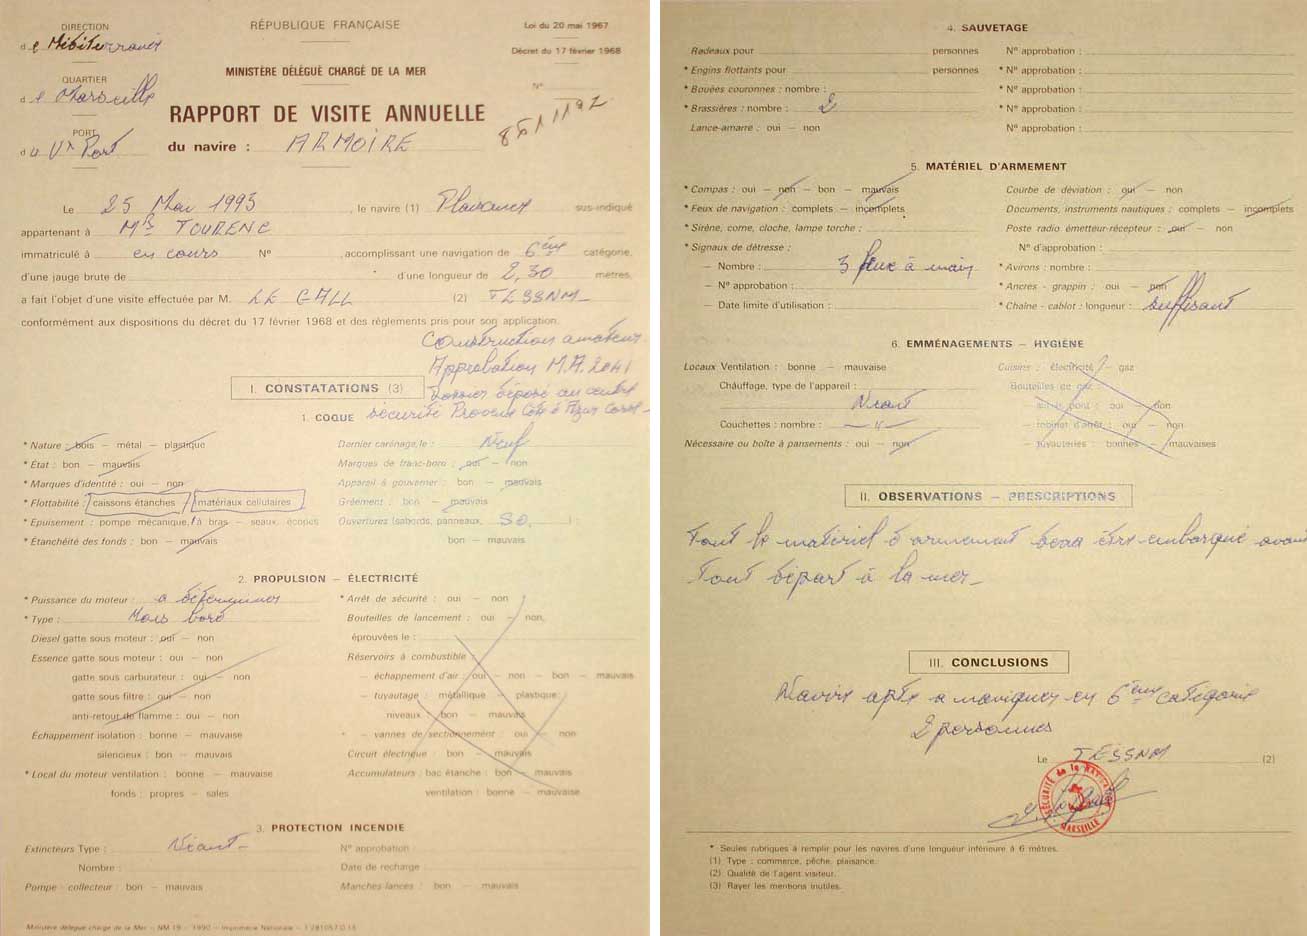 DIRECTION
RÉPUBLIQUE FRANÇAISE
Loi du 20 mai 1967
de Méditerranée
Décret du 17 février 1968
QUARTIER
MINISTÈRE DÉLÉGUÉ CHARGÉ DE LA MER
N°
de Marseille
RAPPORT DE VISITE ANNUELLE
PORT
du Vx Port
du navire : ARMOIRE
Le 25 Mai 1993, le navire (1) Plaisance sus-indiqué
appartenant à Mr TOURENC
immatriculé à en cours N° , accomplissant une navigation de 6ème catégorie,
d'une jauge brute de d'une longueur de 2,30 mètres,
a fait l'objet d'une visite effectuée par M. LE GALL (2) TESSNM
conformément aux dispositions du décret du 17 février 1968 et des règlements pris pour son application.
Construction amateur
Approbation M.A. 2041
I. CONSTATATIONS (3)
Dossier déposé au centre
1. COQUE
sécurité Provence Côte d'Azur Corse
* Nature : bois – métal – plastique
Dernier carénage, le : Neuf
* État : bon – mauvais
Marques de franc-bord : oui – non
* Marques d'identité : oui – non
Appareil à gouverner : bon – mauvais
* Flottabilité : caissons étanches / matériaux cellulaires
Gréement : bon – mauvais
* Epuisement : pompe mécanique, à bras – seaux, écopes
Ouvertures (sabords, panneaux, SO. ) :
* Étanchéité des fonds : bon – mauvais
bon – mauvais
2. PROPULSION – ÉLECTRICITÉ
* Puissance du moteur : a déterminer
* Arrêt de sécurité : oui – non
* Type : Hors bord
Bouteilles de lancement : oui – non,
Diesel gatte sous moteur : oui – non
éprouvées le :
Essence gatte sous moteur : oui – non
Réservoirs à combustible :
gatte sous carburateur : oui – non
– échappement d'air : oui – non – bon – mauvais
gatte sous filtre : oui – non
– tuyautage : métallique – plastique :
anti-retour de flamme : oui – non
niveaux : bon – mauvais
Échappement isolation : bonne – mauvaise
* – vannes de sectionnement : oui – non
silencieux : bon – mauvais
Circuit électrique : bon – mauvais
* Local du moteur ventilation : bonne – mauvaise
Accumulateurs : bac étanche : bon – mauvais
fonds : propres – sales
ventilation : bonne – mauvaise
3. PROTECTION INCENDIE
Extincteurs Type : Néant
N° approbation :
Nombre :
Date de recharge :
Pompe - collecteur : bon – mauvais
Manches-lances : bon – mauvais
Ministère délégué chargé de la Mer – NM 19 – 1990 – Imprimerie Nationale –
4. SAUVETAGE
Radeaux pour personnes N° approbation :
* Engins flottants pour personnes * N° approbation :
* Bouées couronnes : nombre : * N° approbation :
* Brassières : nombre : 2 * N° approbation :
Lance-amarre : oui – non N° approbation :
5. MATÉRIEL D'ARMEMENT
* Compas : oui – non – bon – mauvais
Courbe de déviation : oui – non
* Feux de navigation : complets – incomplets
Documents, instruments nautiques : complets – incomplets
* Sirène, corne, cloche, lampe torche :
Poste radio émetteur-récepteur : oui – non
* Signaux de détresse :
N° d'approbation :
– Nombre : 3 feux à main
* Avirons : nombre :
– N° approbation :
* Ancres - grappin : oui – non
– Date limite d'utilisation :
* Chaîne - cablot : longueur : suffisant
6. EMMÉNAGEMENTS – HYGIÈNE
Locaux Ventilation : bonne – mauvaise
Cuisine : électricité – gaz
Chauffage, type de l'appareil :
Bouteilles de gaz :
Néant
– sur le pont : oui – non
Couchettes : nombre : – " –
– robinet d'arrêt : oui – non
Nécessaire ou boîte à pansements : oui – non
– tuyauteries : bonnes – mauvaises
II. OBSERVATIONS – PRESCRIPTIONS
Tout le matériel d'armement devra être embarqué avant
Tout départ à la mer
III. CONCLUSIONS
Navire apte a naviguer en 6ème catégorie
2 personnes
Le TESSNM (2)
SÉCURITÉ de la NAVIGATION
MARSEILLE
* Seules rubriques à remplir pour les navires d'une longueur inférieure à 6 mètres.
(1) Type : commerce, pêche, plaisance.
(2) Qualité de l'agent visiteur.
(3) Rayer les mentions inutiles.